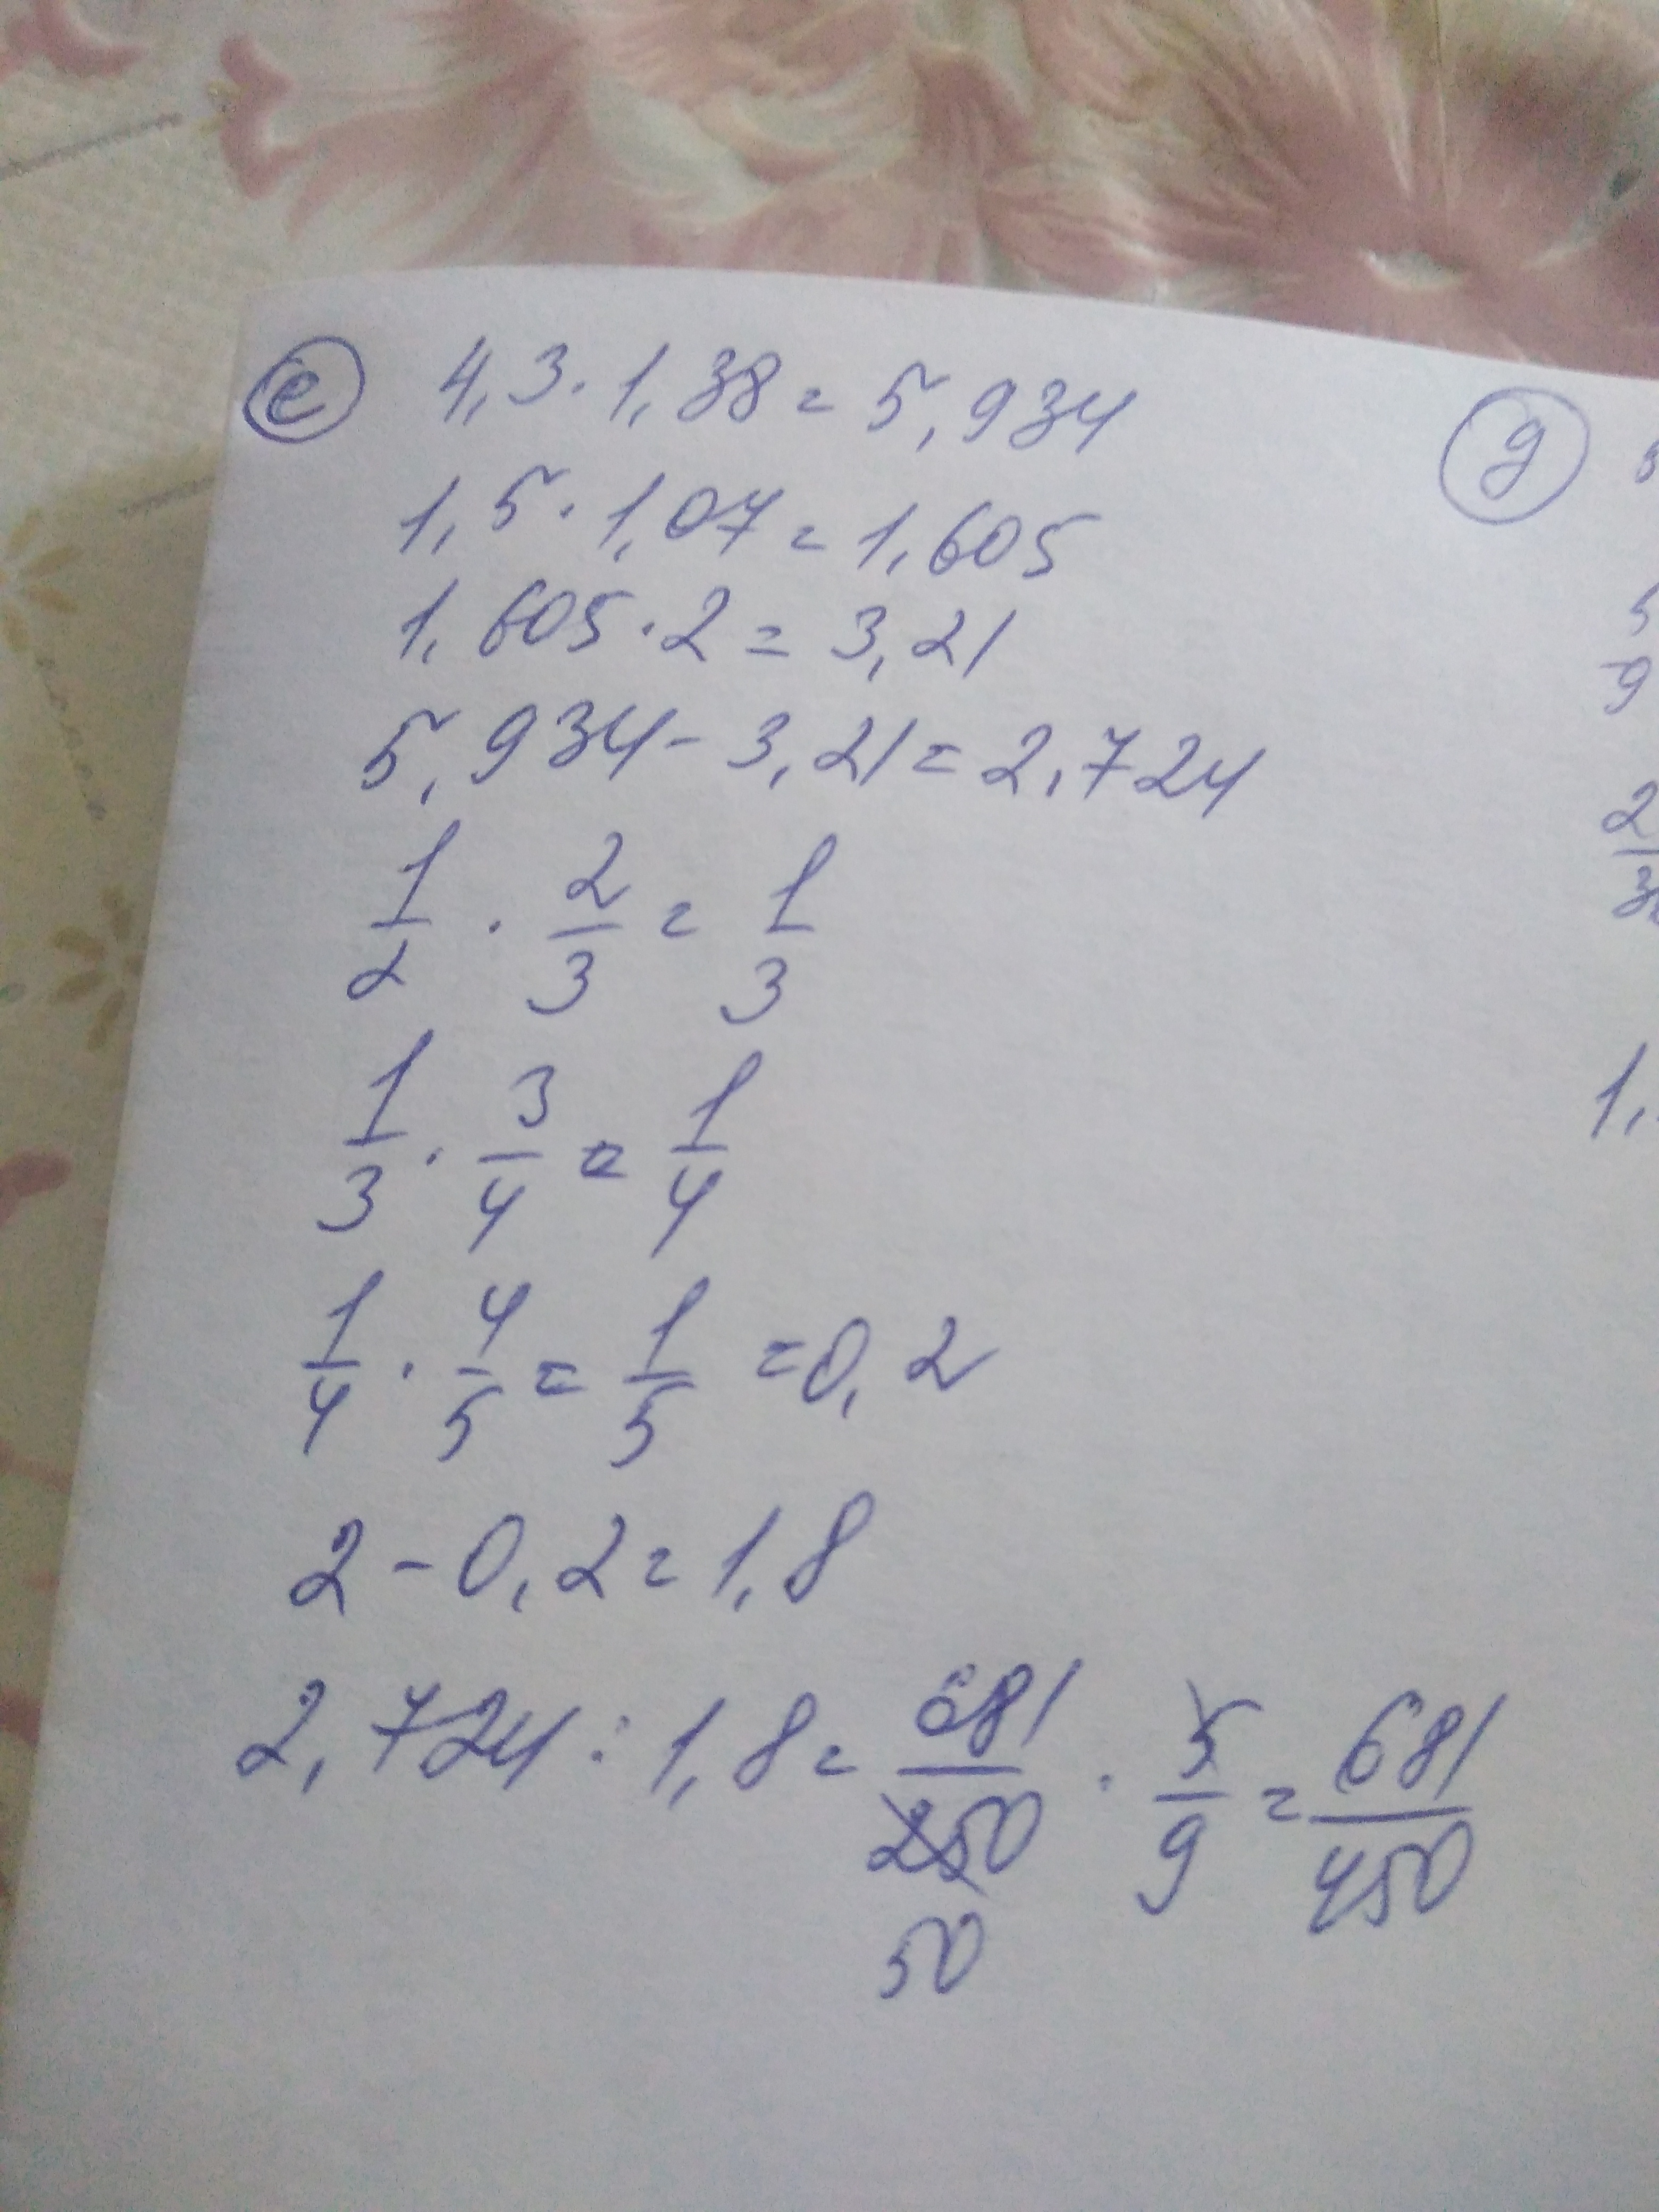 е 4,3 · 1,38 = 5,934
1,5 · 1,07 = 1,605
1,605 · 2 = 3,21
5,934 - 3,21 = 2,724
1/2 · 2/3 = 1/3
1/3 · 3/4 = 1/4
1/4 · 4/5 = 1/5 = 0,2
2 - 0,2 = 1,8
2,724 : 1,8 = 681/250 · 5/9 = 681/450
50
g
5/9
2
1,